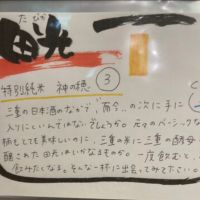 たびか
田光
特別純米 神の穂 ③
三重の日本酒のなかで「而今」の次に手に
入りにくいんではないでしょうか。元々のベーシックな
柄としても美味しいのに、三重の米に三重の酵母
醸された田光はいかなるものか。一度飲むと、
飲みたくなる。そんな一杯に出会ってみて下さい。